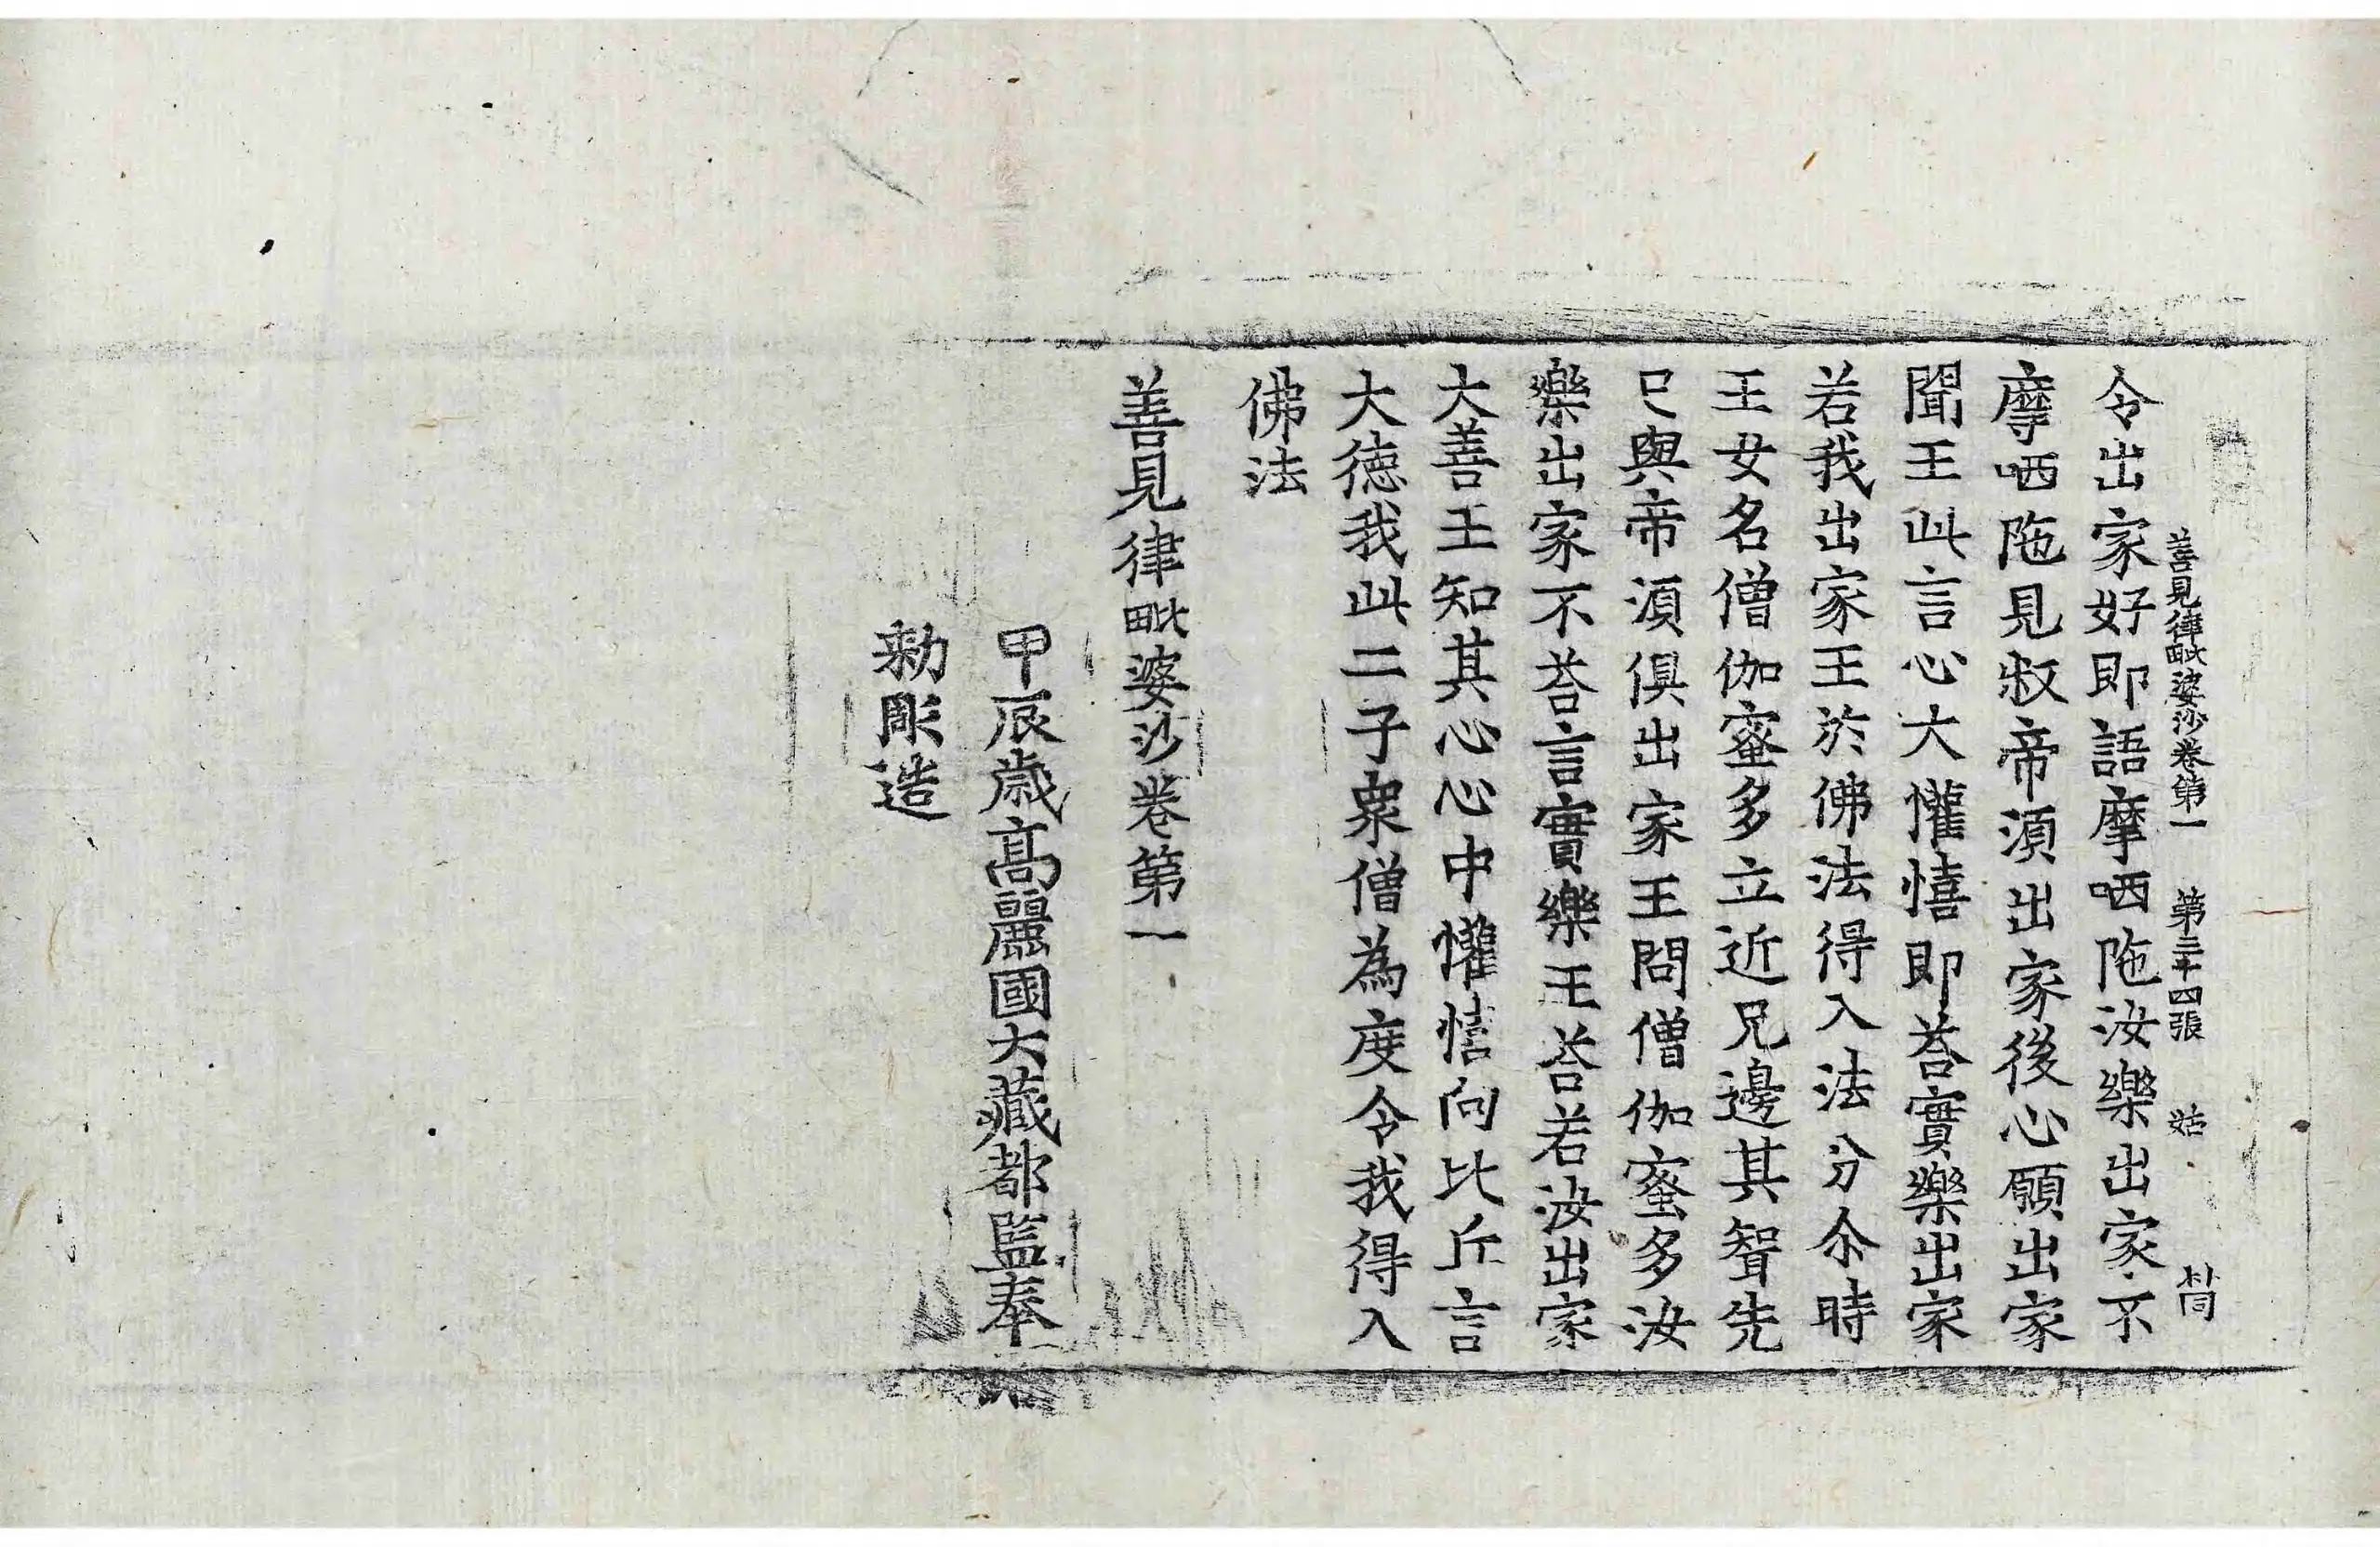 善見律毗婆沙卷第一 第三十四張 姑
令出家好即語摩哂陁汝樂出家不
摩哂陁見叔帝須出家後心願出家
聞王此言心大懽憘即荅實樂出家
若我出家王於佛法得入法分尒時
王女名僧伽蜜多立近兄邊其聟先
已與帝須俱出家王問僧伽蜜多汝
樂出家不荅言實樂王荅若汝出家
大善王知其心心中懽憘向比丘言
大德我此二子衆僧為度令我得入
佛法
善見律毗婆沙卷第一
甲辰歲高麗國大藏都監奉
勅彫造